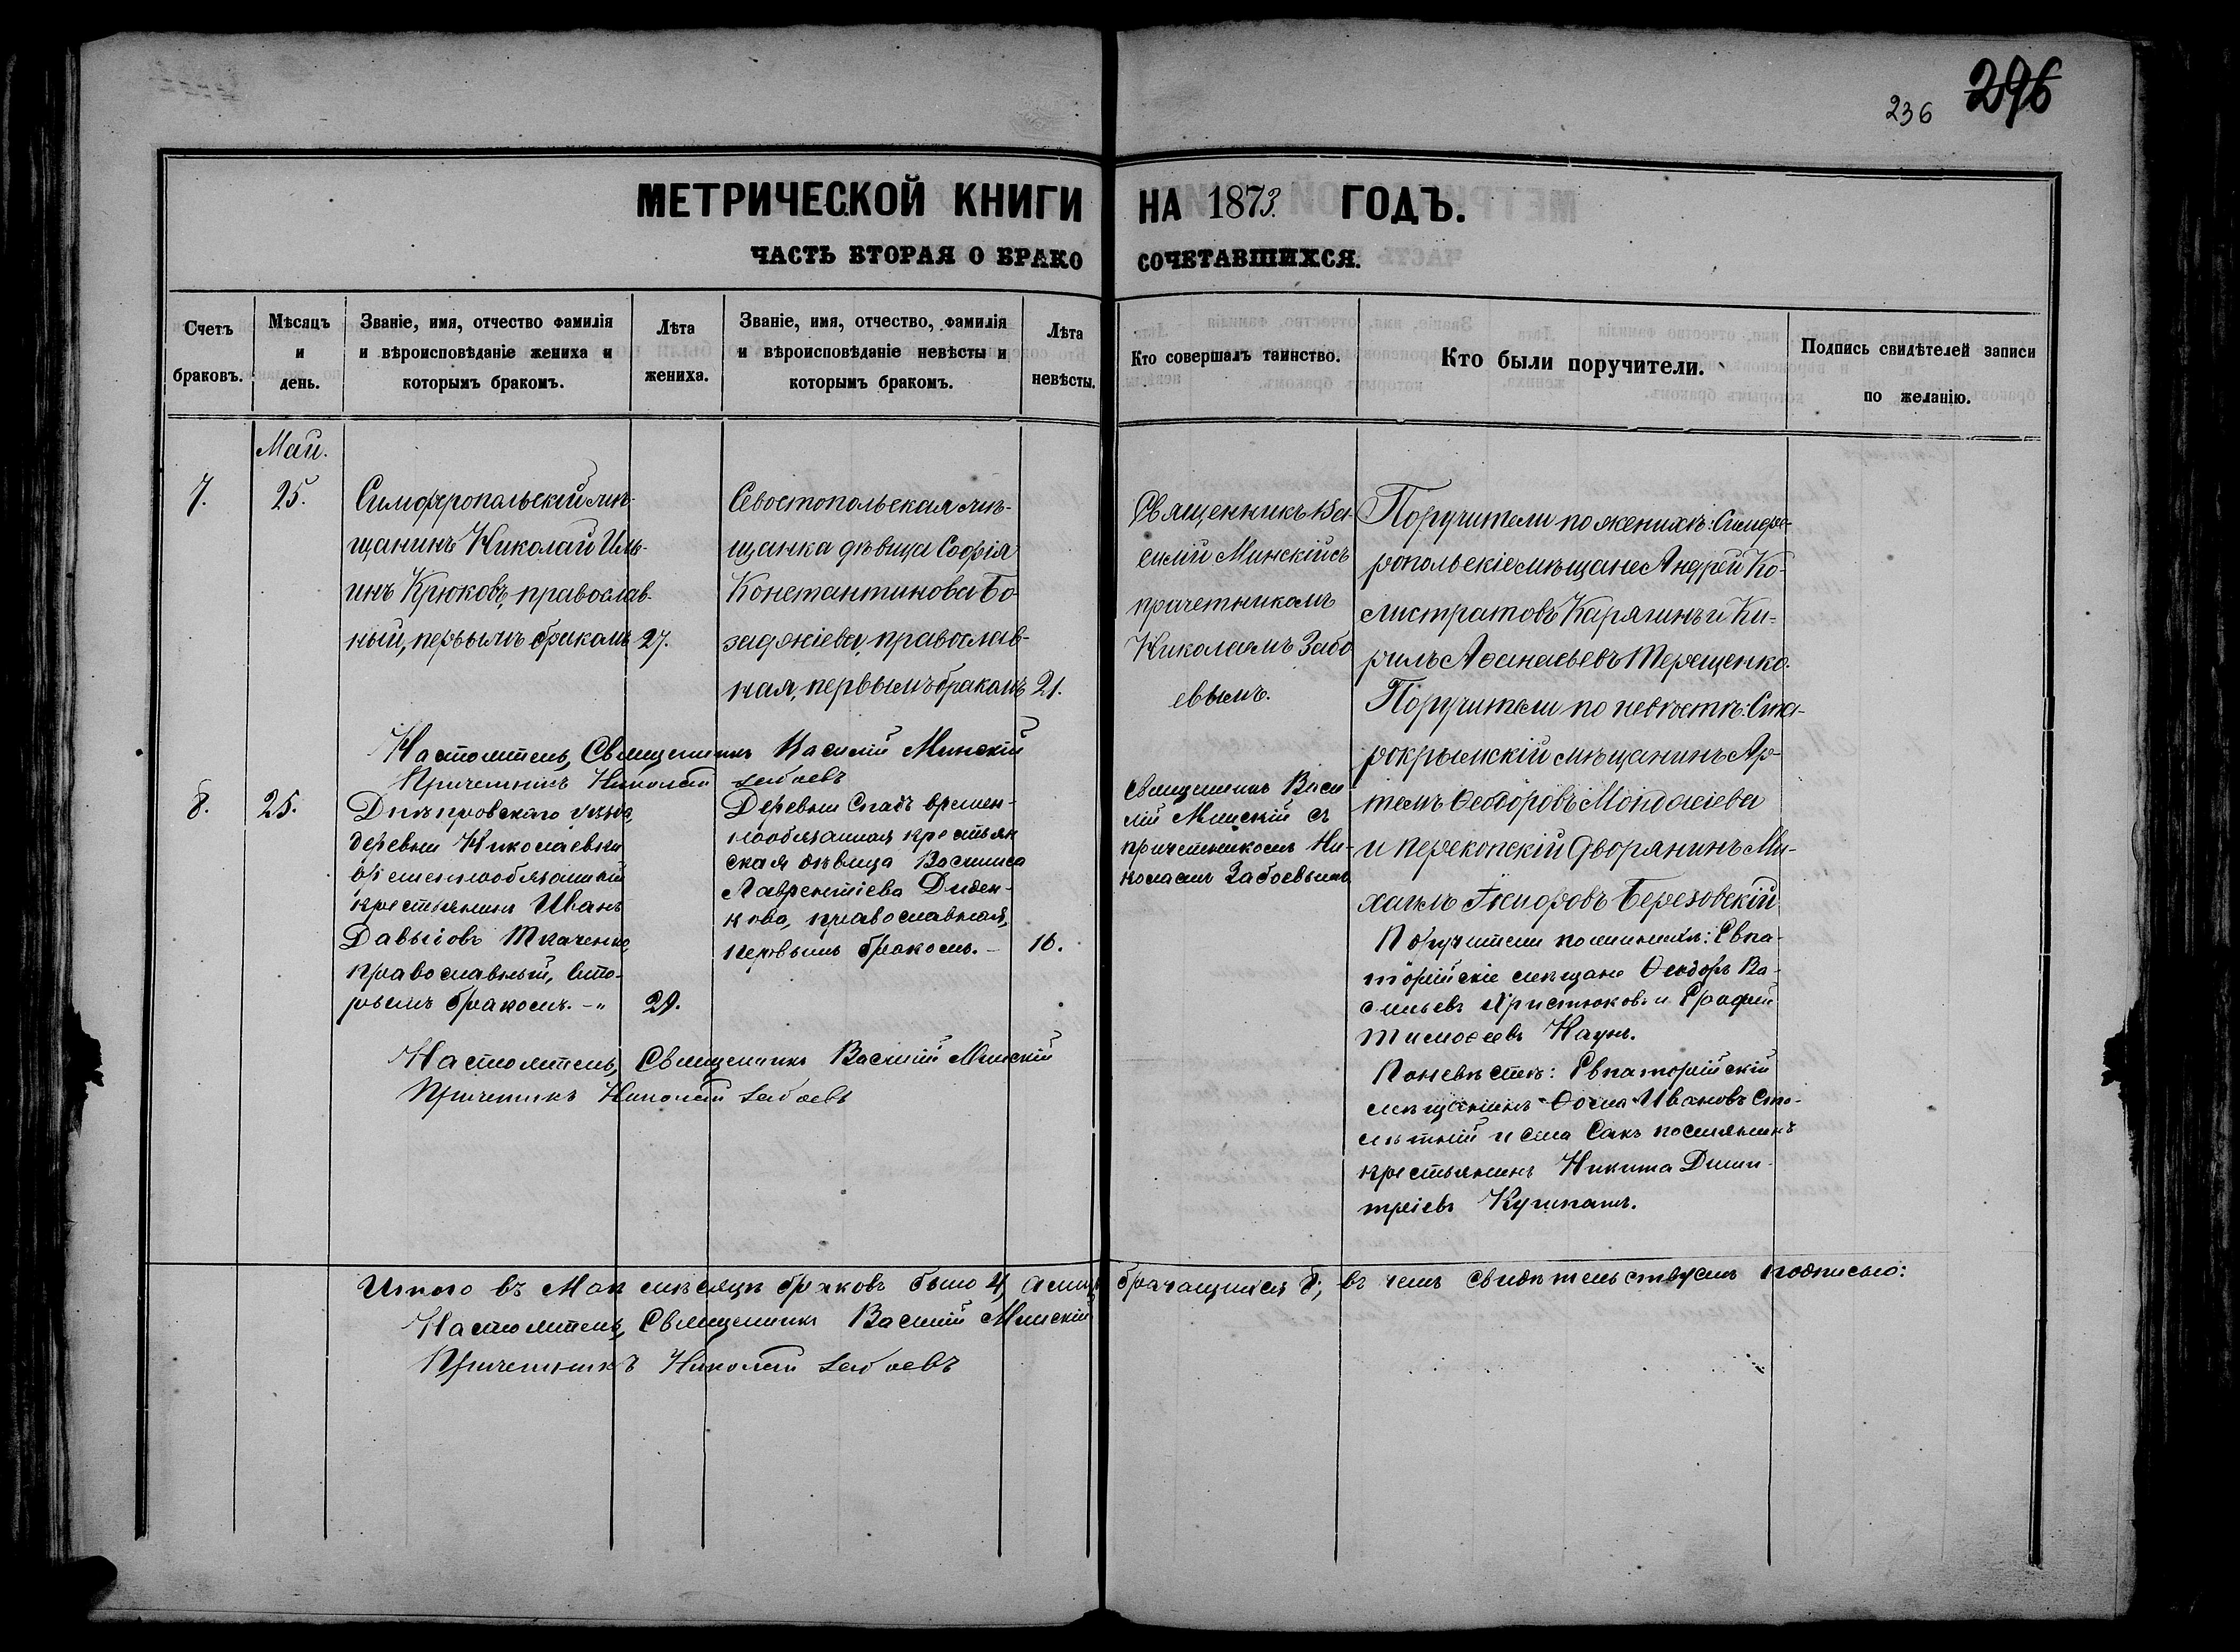 236 296
МЕТРИЧЕСКОЙ КНИГИ НА 1873. ГОДЪ.
ЧАСТЬ ВТОРАЯ О БРАКО СОЧЕТАВШИХСЯ.
Счетъ
браковъ.
Мѣсяцъ
и
день.
Званіе, имя, отчество фамилія
и вѣроисповѣданіе жениха и
которымъ бракомъ.
Лѣта
жениха.
Званіе, имя, отчество, фамилія
и вѣроисповѣданіе невѣсты и
которымъ бракомъ.
Лѣта
невѣсты.
Кто совершалъ таинство.
Кто были поручители.
Подпись свидѣтелей записи
по желанію.
Май.
7.
25.
Симферопольскій мѣ-
щанинъ Николай Иль-
инъ Крюковъ, православ-
ный, первымъ бракомъ
27.
Севостопольская мѣ-
щанка дѣвица Софія
Константинова Бо-
заджіева, православ-
ная, первымъ бракомъ
21.
Священникъ Ва-
силій Минскій съ
причетникомъ
Николаемъ Забо
евымъ.
Поручители по женихѣ: Симфе-
ропольскіе мѣщане Андрей Ко-
листратовъ Карягинъ и Ки-
рилъ Аѳанасьевъ Терещенко.
Поручители по невѣстѣ: Ста-
рокрымскій мѣщанинъ Ар-
темъ Ѳеодоровъ
и перекопскій дворянинъ Ми-
хаилъ Березовскій
Настоятель, Священникъ Василій Минскій
Причетникъ Николай Забоевъ
8.
25.
Днѣпровскаго уѣзда,
деревни Николаевки
временнообязанный
крестьянинъ Иванъ
Давыдовъ Ткаченко,
православный, вто-
рымъ бракомъ. – „
29.
Деревни Спатъ времен-
нообязанная крестьян
ская дѣвица Василиса
Лаврентіева Диден-
кова, православная,
первымъ бракомъ. –
16.
Священникъ Васи
лій Минскій съ
причетникомъ Ни-
колаемъ Забоевымъ
Поручители по женихѣ: Евпа-
торійскіе мѣщане Ѳеодоръ Ва-
сильевъ Христюковъ и
Тимоѳеевъ Каунъ.
По невѣстѣ: Евпаторійскій
мѣщанинъ Ѳома Ивановъ Сто-
лѣтній и села Сакъ поселянинъ
крестьянинъ Никита Дими-
тріевъ
Настоятель, Священникъ Василій Минскій
Причетникъ Николай Забоевъ
Итого въ Маѣ мѣсяцѣ браковъ было 4, а лицъ брачащихся 8, въ чемъ свидѣтельствуемъ подписью:
Настоятель, Священникъ Василій Минскій
Причетникъ Николай Забоевъ